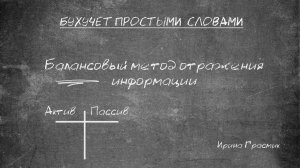 БУХУЧЕТ ПРОСТЫМИ СЛОВАМИ
Балансовый метод отражения
информации
Актив Пассив
Ирина